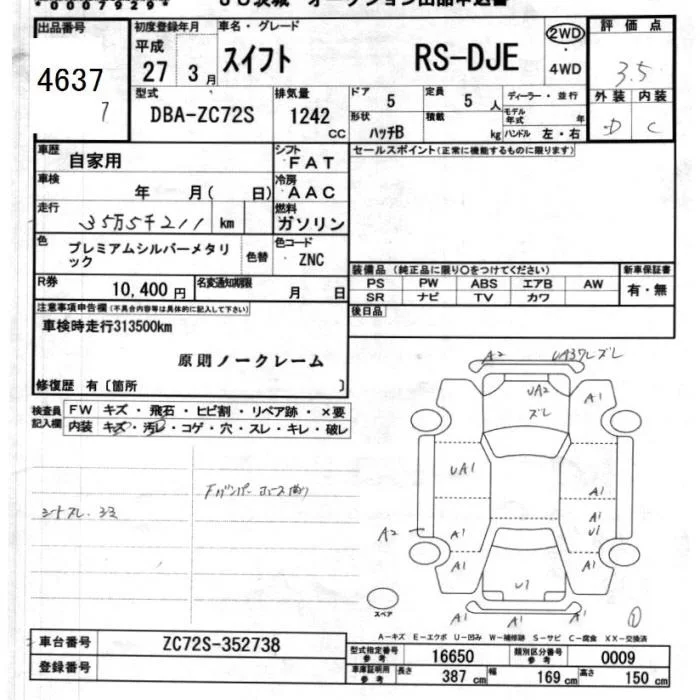 *00079290*
JU茨城 オークション出品申込書
出品番号 初度登録年月 車名・グレード 評価点
平成 27年 3月 スイフト RS-DJE 2WD ・ 4WD 3.5
4637
7
型式 DBA-ZC72S 排気量 1242 CC
ドア 5 定員 5 人 ディーラー・並行 外装 内装
形状 ハッチB 積載 kg モデル年式 年 D C
ハンドル 左・右
車歴 自家用 シフト FAT セールスポイント(正常に機能するものに限ります)
車検 年 月( 日) 冷房 AAC
走行 35万5千211 km 燃料 ガソリン
色 プレミアムシルバーメタリック 色替 色コード ZNC
R券 10,400円 名変通知期限 月 日
装備品 (純正品に限り○をつけてください) 新車保証書
PS PW ABS エアB AW 有・無
SR ナビ TV カワ
後日品
注意事項申告欄(不具合内容等は具体的に記入して下さい)
車検時走行313500km
原則ノークレーム
修復歴 有〔箇所 〕
検査員記入欄 FW キズ・飛石・ヒビ割・リペア跡・×要
内装 キズ・汚レ・コゲ・穴・スレ・キレ・破レ
A2 UA3ワレズレ
UA2 ズレ A1
UA1 A1
A1 U1
A2 A1 A1 A1
U1
A1 A1
スペア
A-キズ E-エクボ U-凹み W-補修跡 S-サビ C-腐食 XX-交換済
車台番号 ZC72S-352738
登録番号
型式指定番号 参考 16650 類別区分番号 参考 0009
車庫証明用 参考 長さ 387 cm 幅 169 cm 高さ 150 cm